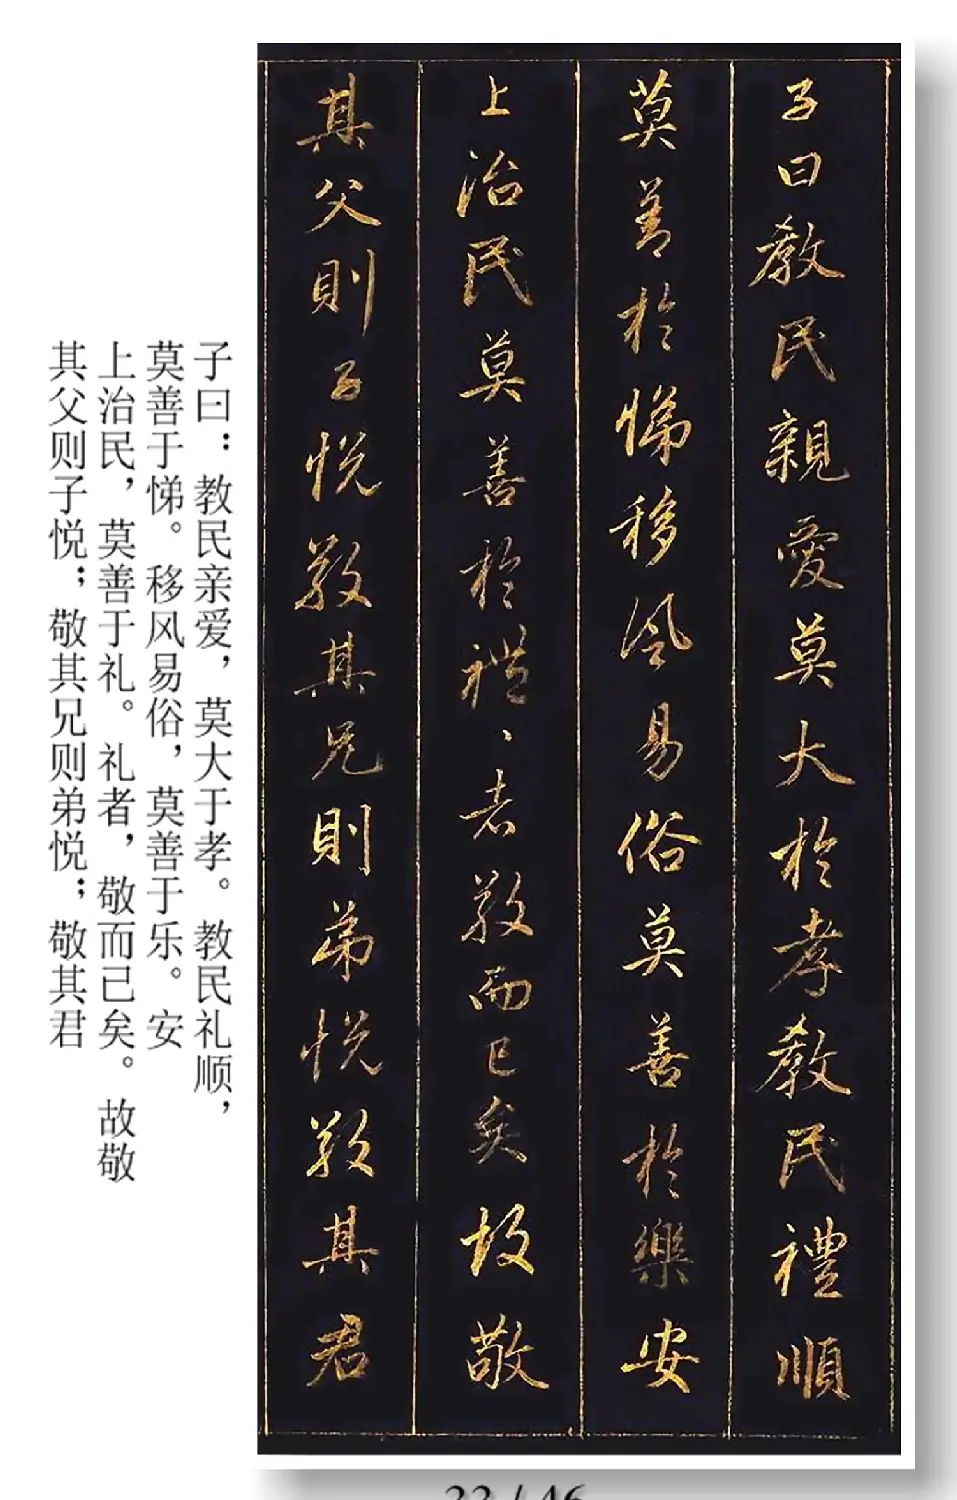 子曰教民親愛莫大於孝教民禮順
莫善於悌移風易俗莫善於樂安
上治民莫善於禮、者敬而已矣故敬
其父則子悅敬其兄則弟悅敬其君
子曰：教民亲爱，莫大于孝。教民礼顺，
莫善于悌。移风易俗，莫善于乐。安
上治民，莫善于礼。礼者，敬而已矣。故敬
其父则子悦；敬其兄则弟悦；敬其君
33 / 46